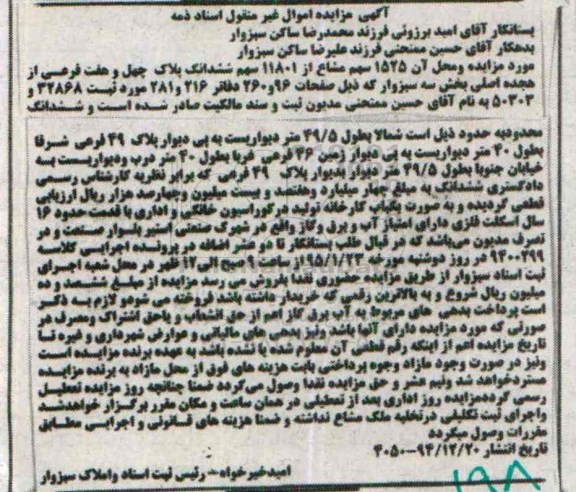 آگهی مزایده اموال غیر منقول اسناد ذمه
بستانکار آقای امید برزوئی فرزند محمدرضا ساکن سبزوار
بدهکار آقای حسین ممتحنی فرزند علیرضا ساکن سبزوار
مورد مزایده ومحل آن ۱۵۲۵ سهم مشاع از ۱۱۸۰۱ سهم ششدانگ پلاک چهل و هفت فرعی از
هجده اصلی بخش سه سبزوار که ذیل صفحات ۹۶و۲۶۰ دفاتر ۲۱۶ و۲۸۱ مورد ثبت ۳۲۸۶۸ و
۵۰۳۰۳ به نام آقای حسین ممتحنی مدیون ثبت و سند مالکیت صادر شده است و ششدانگ
محدودبه حدود ذیل است شمالا بطول ۴۹/۵ متر دیواریست به پی دیوار پلاک ۴۹ فرعی شرقا
بطول ۴۰ متر دیواریست به پی دیوار زمین ۴۶ فرعی غربا بطول ۴۰ متر درب ودیواریست به
خیابان جنوبا بطول ۴۹/۵ متر دیوار بدیوار پلاک ۳۹ فرعی که برابر نظریه کارشناس رسمی
دادگستری ششدانگ به مبلغ چهار میلیارد وهفتصد و بیست میلیون وچهارصد هزار ریال ارزیابی
قطعی گردیده و به صورت یکباب کارخانه تولید دکوراسیون خانگی و اداری با قدمت حدود ۱۶
سال اسکلت فلزی دارای امتیاز آب و برق وگاز واقع در شهرک صنعتی اسیر بلوار صنعت و در
تصرف مدیون می‌باشد که در قبال طلب بستانکار تا دو عشر اضافه در پرونده اجرایی کلاسه
۹۴۰۰۲۹۹ در روز دوشنبه مورخه ۹۵/۱/۲۳ از ساعت ۹ صبح الی ۱۲ ظهر در محل شعبه اجرای
ثبت اسناد سبزوار از طریق مزایده حضوری نقدا بفروش می رسد مزایده از مبلغ ششصد و ده
میلیون ریال شروع و به بالاترین رقمی که خریدار داشته باشد فروخته می شودو لازم به ذکر
است پرداخت بدهی های مربوط به آب برق گاز اعم از حق انشعاب و یاحق اشتراک ومصرف در
صورتی که مورد مزایده دارای آنها باشد ونیز بدهی های مالیاتی و عوارض شهرداری و غیره تا
تاریخ مزایده اعم از اینکه رقم قطعی آن معلوم شده یا نشده باشد به عهده برنده مزایده است
ونیز در صورت وجود مازاد وجوه پرداختی بابت هزینه های فوق از محل مازاد به برنده مزایده
مستردخواهد شد ونیم عشر و حق مزایده نقدا وصول می‌گردد ضمنا چنانچه روز مزایده تعطیل
رسمی گرددمزایده روز اداری بعد از تعطیلی در همان ساعت و مکان مقرر برگزار خواهدشد
واجرای ثبت تکلیفی درتخلیه ملک مشاع نداشته و ضمنا هزینه های قانونی و اجرایی مطابق
مقررات وصول میگردد
تاریخ انتشار ۹۴/۱۲/۲۰-۴۰۵۰
امیدخیرخواه - رئیس ثبت اسناد واملاک سبزوار
۱۹۸